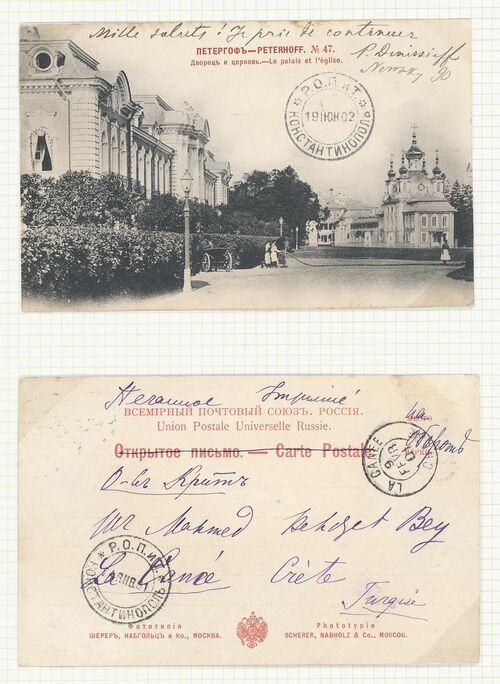 Mille saluts! Je prie de continuer
ПЕТЕРГОФЪ—PETERHOFF. № 47.
Дворецъ и церковь.—Le palais et l'église.
Р.О.П.иТ.
КОНСТАНТИНОПОЛЬ
Newsky 90
Печатное Imprimé
ВСЕМІРНЫЙ ПОЧТОВЫЙ СОЮЗЪ. РОССІЯ.
Union Postale Universelle Russie.
на
оборотѣ
Открытое письмо. — Carte Postale
LA CANEE
О-въ Критъ
Mr Mahmed Behdget Bey
La Canée Crète
Turquie
Р.О.П.иТ.
КОНСТАНТИНОПОЛЬ
Фототипія
ШЕРЕРЪ, НАБГОЛЬЦЪ и Ко., МОСКВА.
Phototypie
SCHERER, NABHOLZ & Co., MOSCOU.